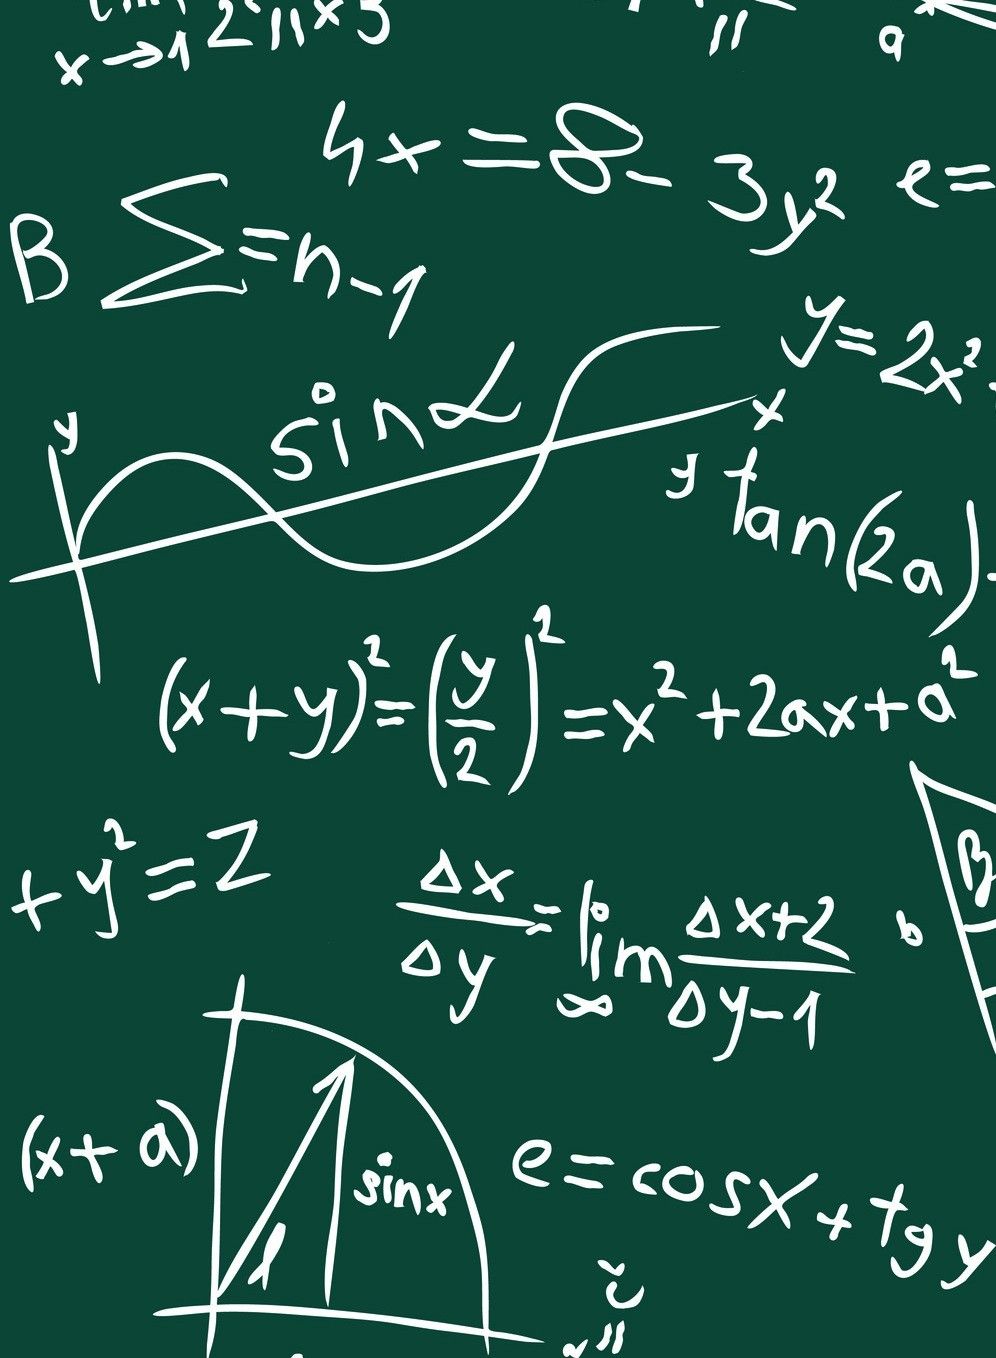 x→1
a
4x=8-3y²
e=
B Σ=n-1
y=2x²
y
sinα
x
y tan(2a)
(x+y)²=(y/2)²=x²+2ax+a²
+y²=Z
Δx/Δy=lim ∞ Δx+2/Δy-1
b
B
(x+a)
sinx
e=cosx+tgy